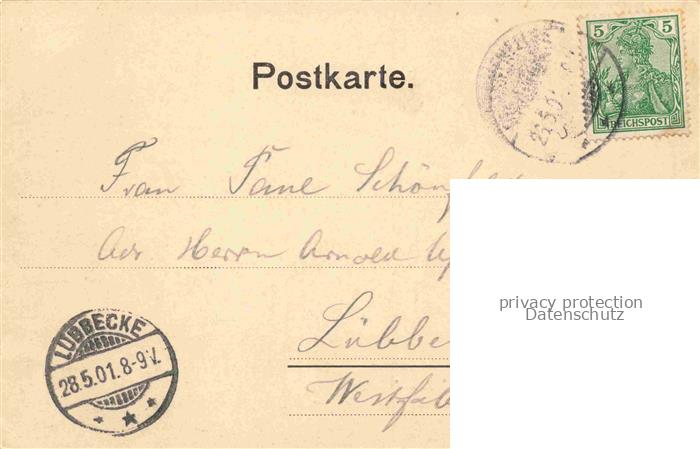 Postkarte.
5 5
REICHSPOST
Frau Paul
Adr Herrn Arnold
Lübbe
Westfa
LÜBBECKE
28.5.01.8-9V.
privacy protection
Datenschutz